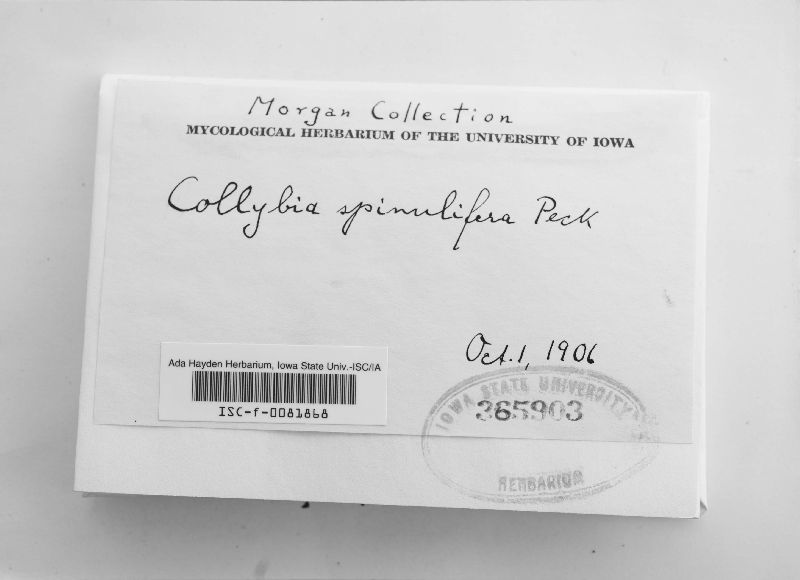 Morgan Collection
MYCOLOGICAL HERBARIUM OF THE UNIVERSITY OF IOWA
Collybia spinulifera Peck
Oct. 1, 1906
Ada Hayden Herbarium, Iowa State Univ.-ISC/IA
ISC-f-0081868
IOWA STATE UNIVERSITY
365903
HERBARIUM